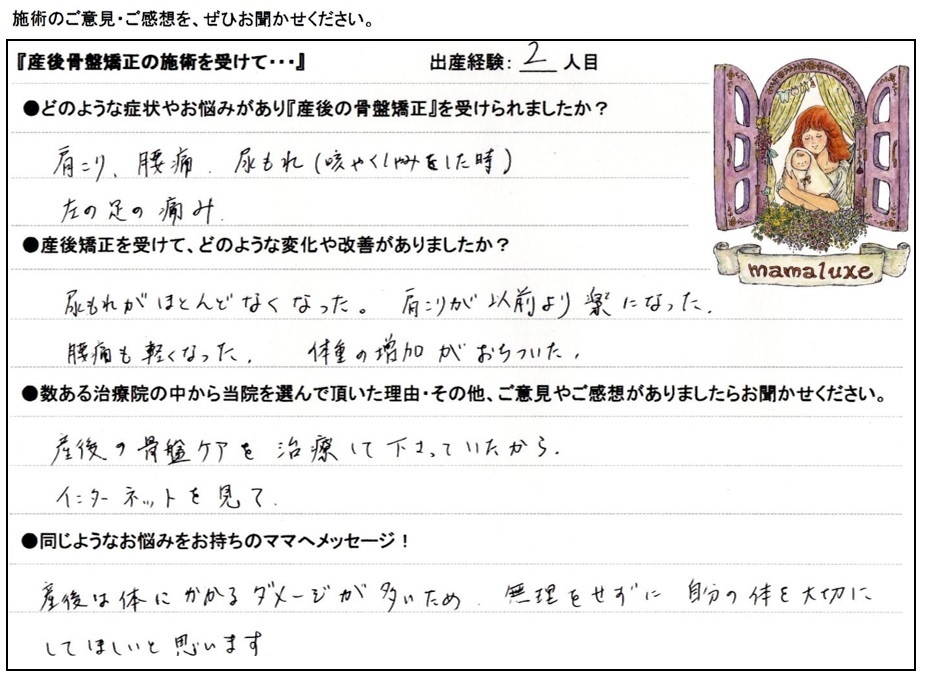 施術のご意見・ご感想を、ぜひお聞かせください。
『産後骨盤矯正の施術を受けて・・・』 出産経験: 2 人目
●どのような症状やお悩みがあり『産後の骨盤矯正』を受けられましたか？
肩こり、腰痛、尿もれ(咳やくしゃみをした時)
左の足の痛み.
●産後矯正を受けて、どのような変化や改善がありましたか？
尿もれがほとんどなくなった。 肩こりが以前より楽になった.
腰痛も軽くなった. 体重の増加がおちついた.
●数ある治療院の中から当院を選んで頂いた理由・その他、ご意見やご感想がありましたらお聞かせください。
産後の骨盤ケアを治療して下さっていたから.
インターネットを見て.
●同じようなお悩みをお持ちのママへメッセージ！
産後は体にかかるダメージが多いため、無理をせずに自分の体を大切に
してほしいと思います
mamaluxe